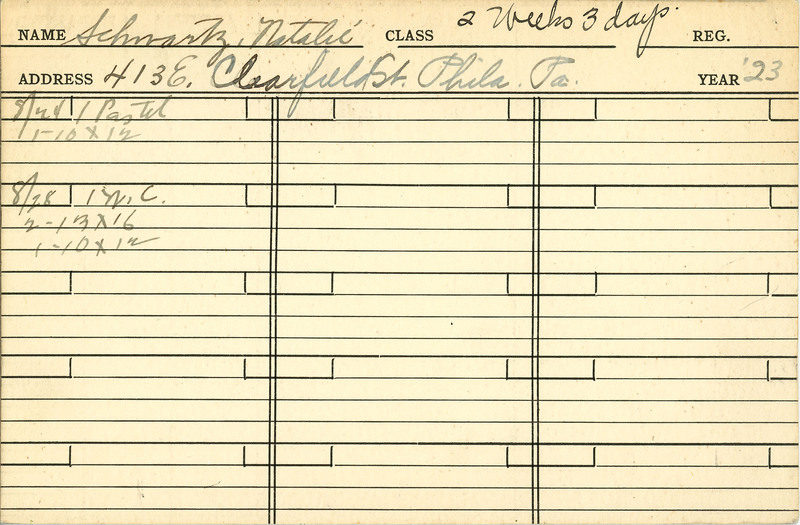 NAME Schwartz, Natalie CLASS 2 Weeks 3 days. REG.
ADDRESS 413 E. Clearfield St. Phila. Pa. YEAR '23
8/24 1 Pastel
1-10 x 12
8/28 1 W.C.
2-13 x 16
1-10 x 12